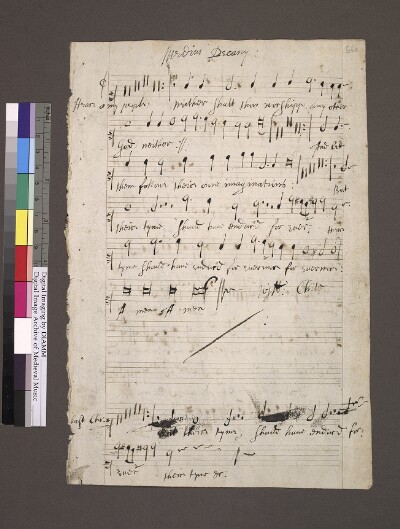 Medius Decany:
Heare o my people. neither shalt thou worshippe any other
God neither:// And let
them followe theire owne imaginations: But
theire tyme should have endured for ever: their
tyme should have endured for evermore for evermore:
A men A men
theire tyme should have endured for
ever theire tyme &c:
Digital Imaging by DIAMM
Digital Image Archive of Medieval Music